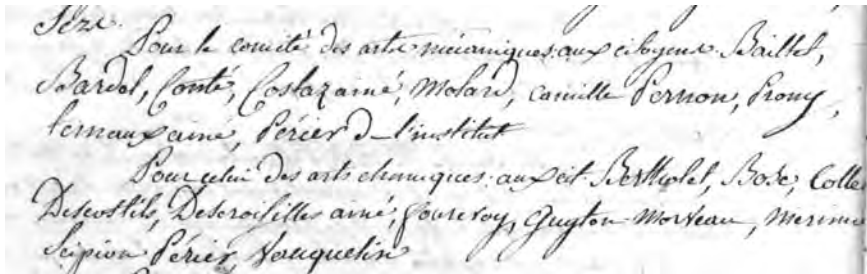 Pour le comité des arts mécaniques: aux citoyens Baillet,
Bardel, Conté, Costaz ainé, Molard, camille Pernon, Prony,
Ternaux ainé, Périer d l'institut
Pour celui des arts chimiques: aux cit. Berthollet, Bosc, Colle
Descostils, Descroisilles ainé, fourcroy, Guyton-Morveau, merime
Scipion Périer, Vauquelin